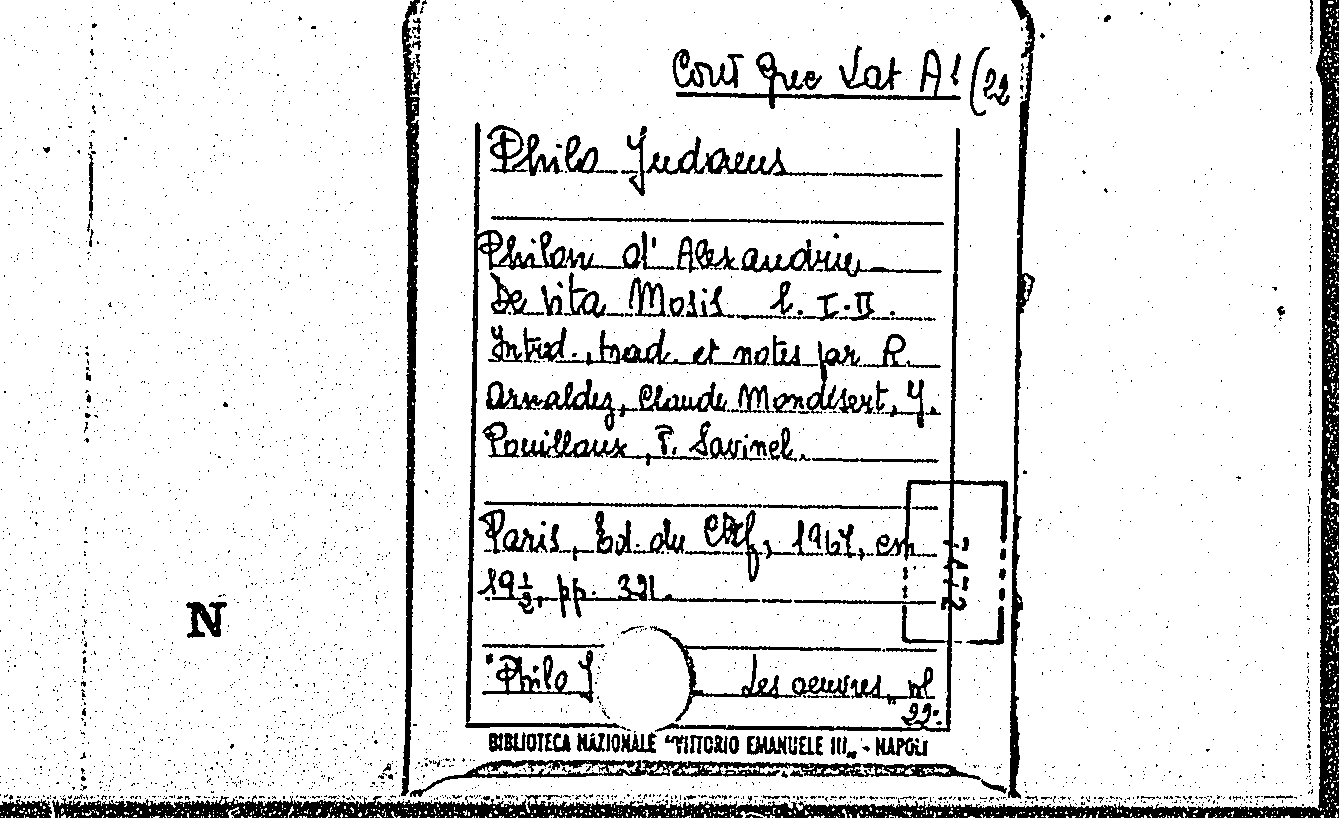 Cout grec Vat A1 (22
Philo Judaeus
Philon d'Alexandrie
De vita Mosis l. I-II.
Introd., trad. et notes par R.
Arnaldez, Claude Mondésert, J.
Pouilloux, P. Savinel.
Paris, Ed. du Cerf, 1967, cm
19½, pp. 321.
"Philo J Les oeuvres, vol
22.
N
BIBLIOTECA NAZIONALE "VITTORIO EMANUELE III„ - NAPOLI